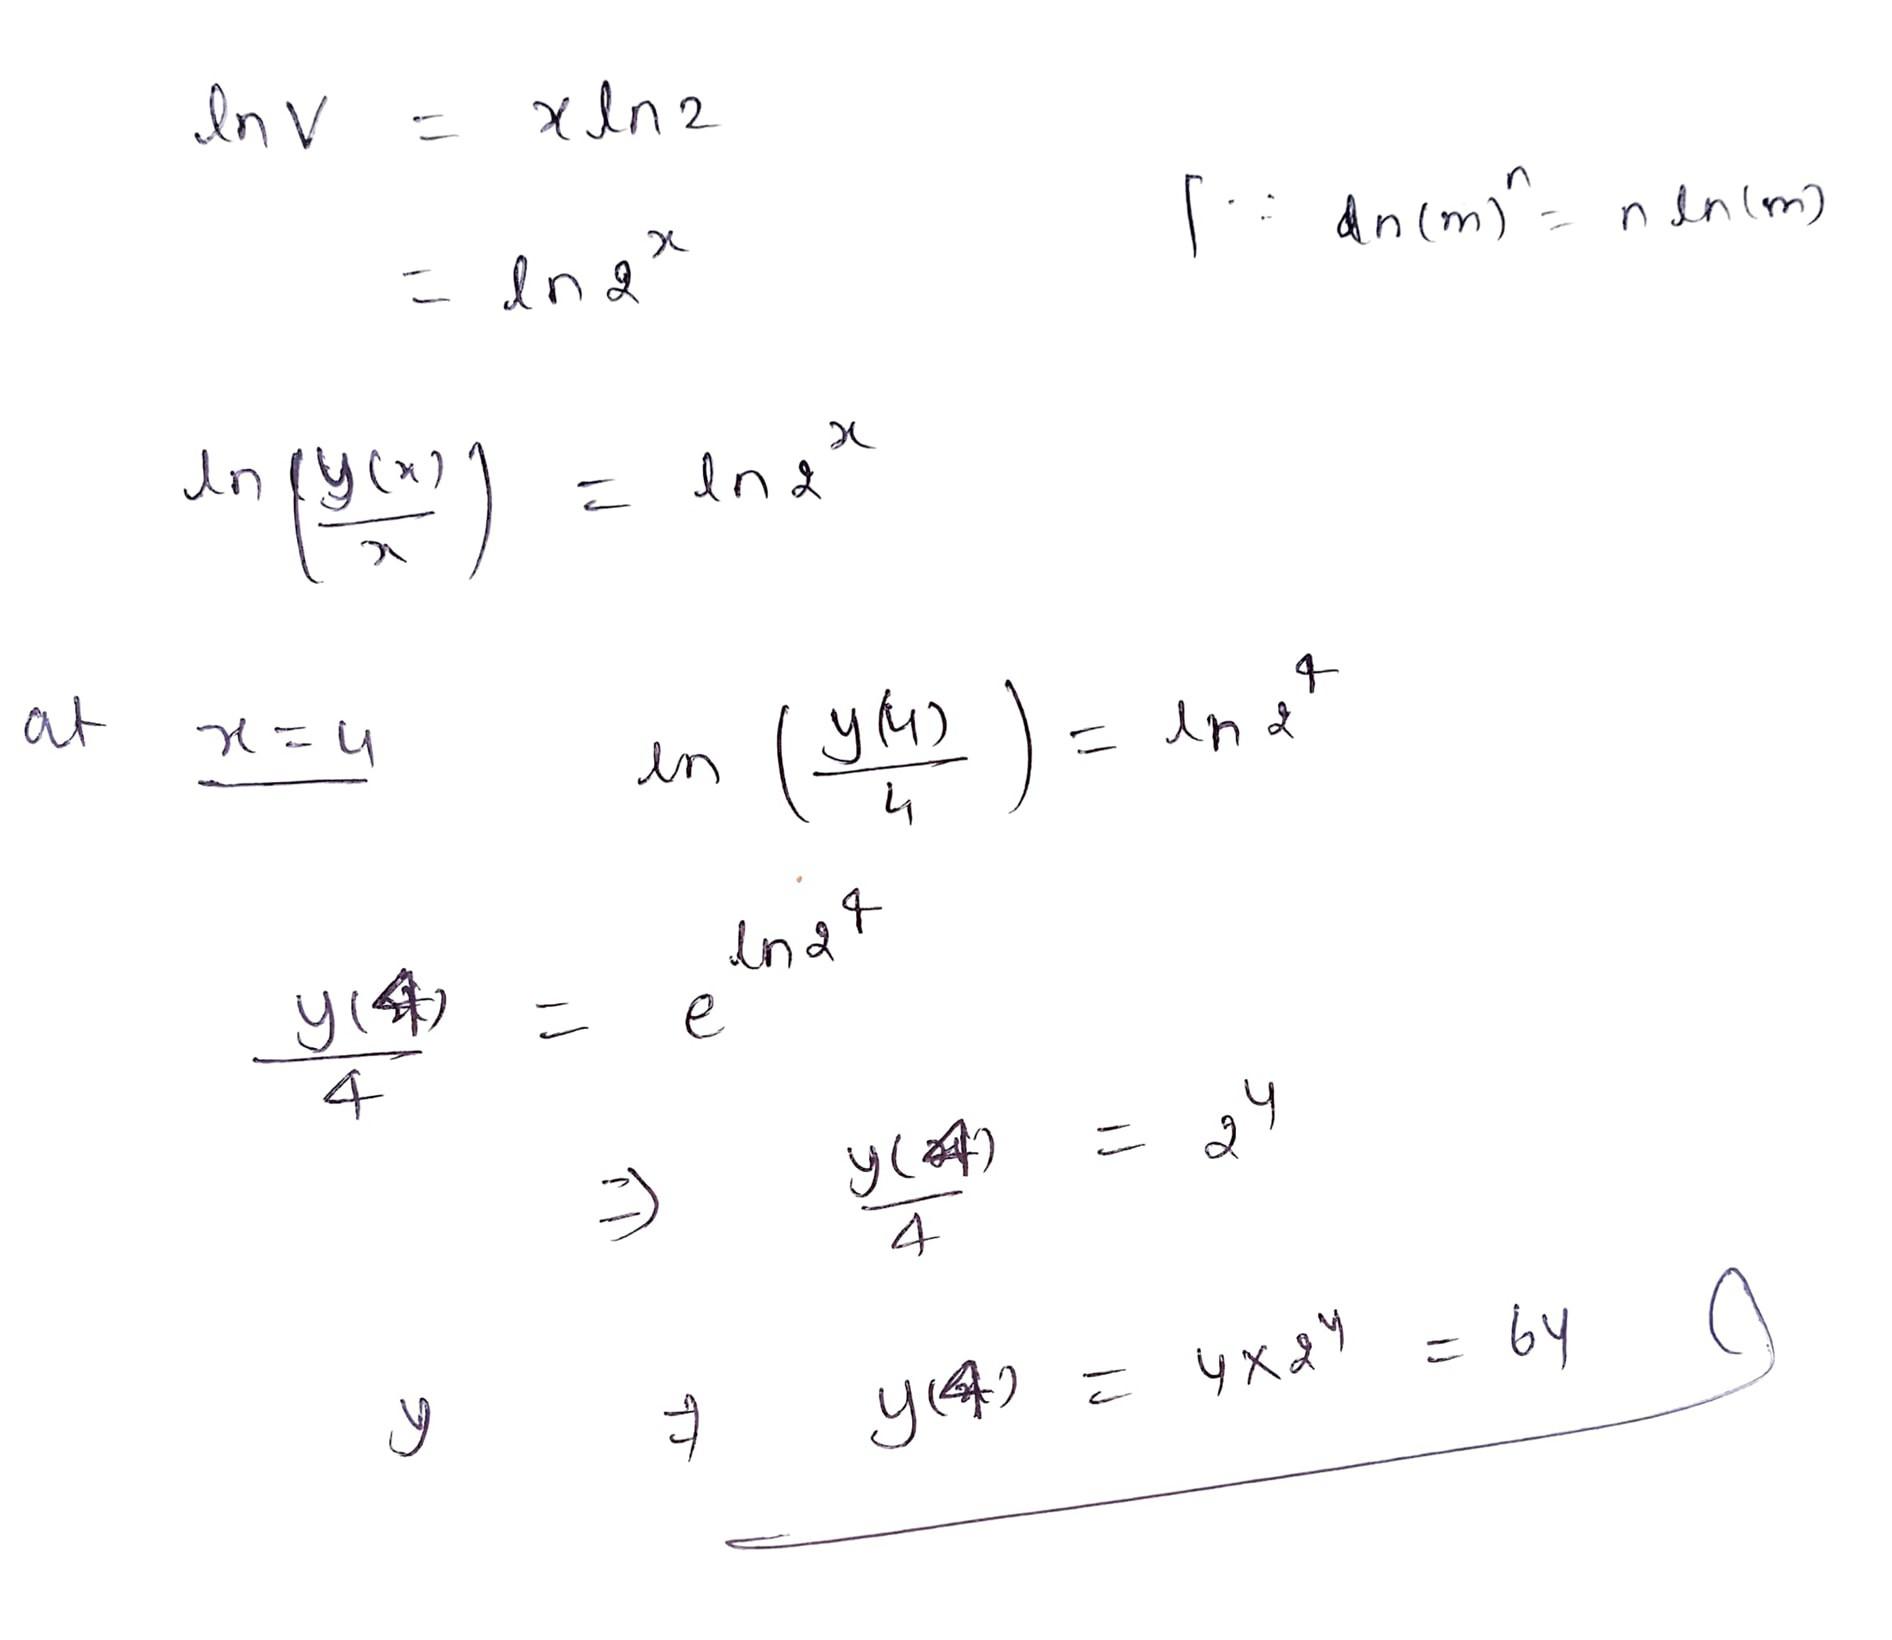 ln V = x ln 2
[∵ ln(m)ⁿ = n ln(m)
= ln 2ˣ
ln (y(x)/x) = ln 2ˣ
at x = 4 ln (y(4)/4) = ln 2⁴
y(4)/4 = e^(ln 2⁴)
⇒ y(4)/4 = 2⁴
y ⇒ y(4) = 4 × 2⁴ = 64